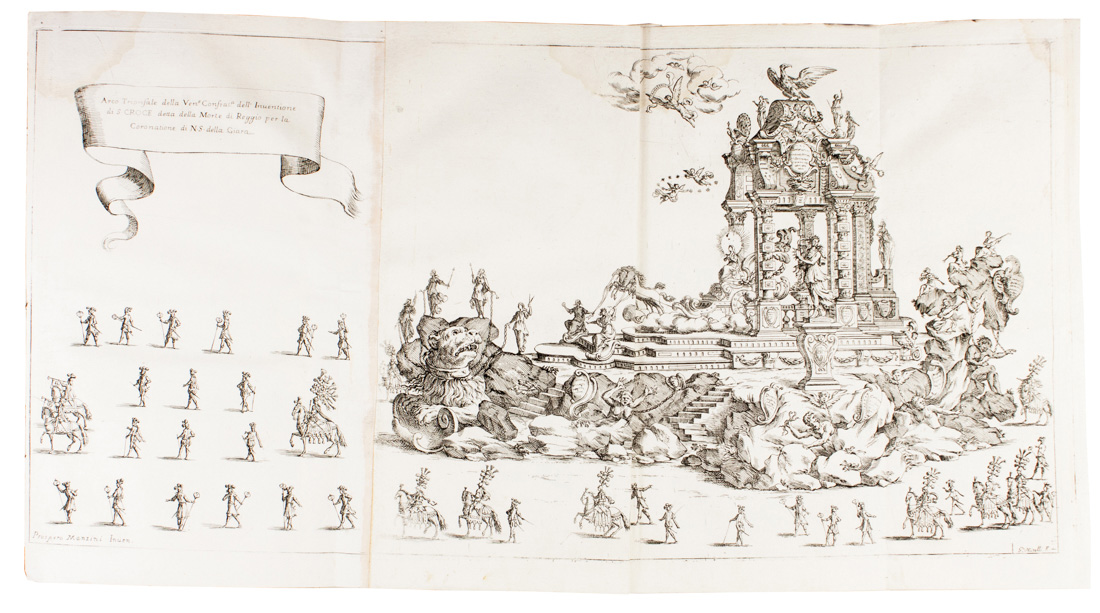 Arco Trionfale della Ven.e Confrat.a dell' Inuentione
di S. CROCE detta della Morte di Reggio per la
Coronatione di N.S. della Giara.
Pelegrini Monzini Inuen